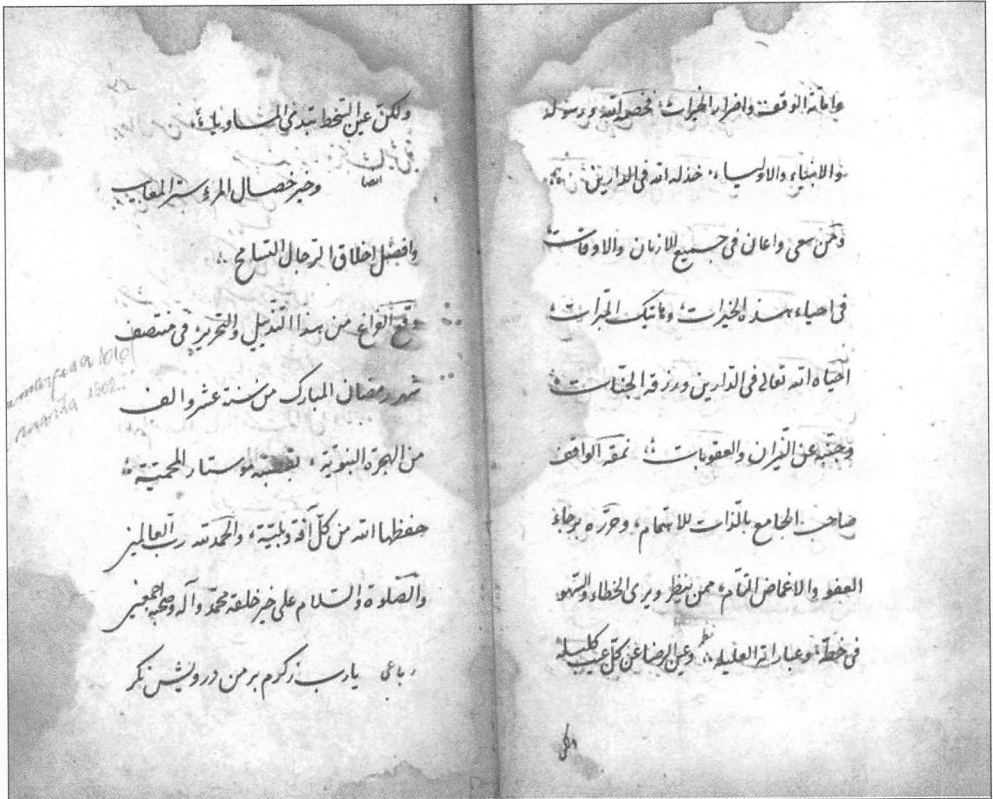 واماتة الوقف واضرار الخيرات، فخصمه الله ورسوله
والانبياء والاولياء، خذله الله فى الدارين
ومن سعى واعان فى جميع الازمان والاوقات
فى احياء هذه الخيرات، وهاتيك المبرات
احياه الله تعالى فى الدارين ورزقه الجنات
وجنبه عن النيران والعقوبات، نمقه الواقف
صاحب الجامع بالذات للاهتمام، وحرره برجاء
العفو والاغماض التام، ممن ينظر ويرى الخطاء والسهو
فى خطه وعباراته العليله نظم وعين الرضا عن كل عيب كليلة
ولكن
ولكن عين السخط تبدى المساويا
ايضا وخير خصال المرء ستر المعايب
وافضل اخلاق الرجال التسامح
وقع الفراغ من هذا التذييل والتحرير فى منتصف
شهر رمضان المبارك من سنة عشر والف
من الهجرة النبوية، بقصبة موستار المحمية
حفظها الله من كل آفة وبلية، والحمد لله رب العالمين
والصلوة والسلام على خير خلقه محمد وآله وصحبه اجمعين
رباعى يارب ز كرم بر من درويش نكر